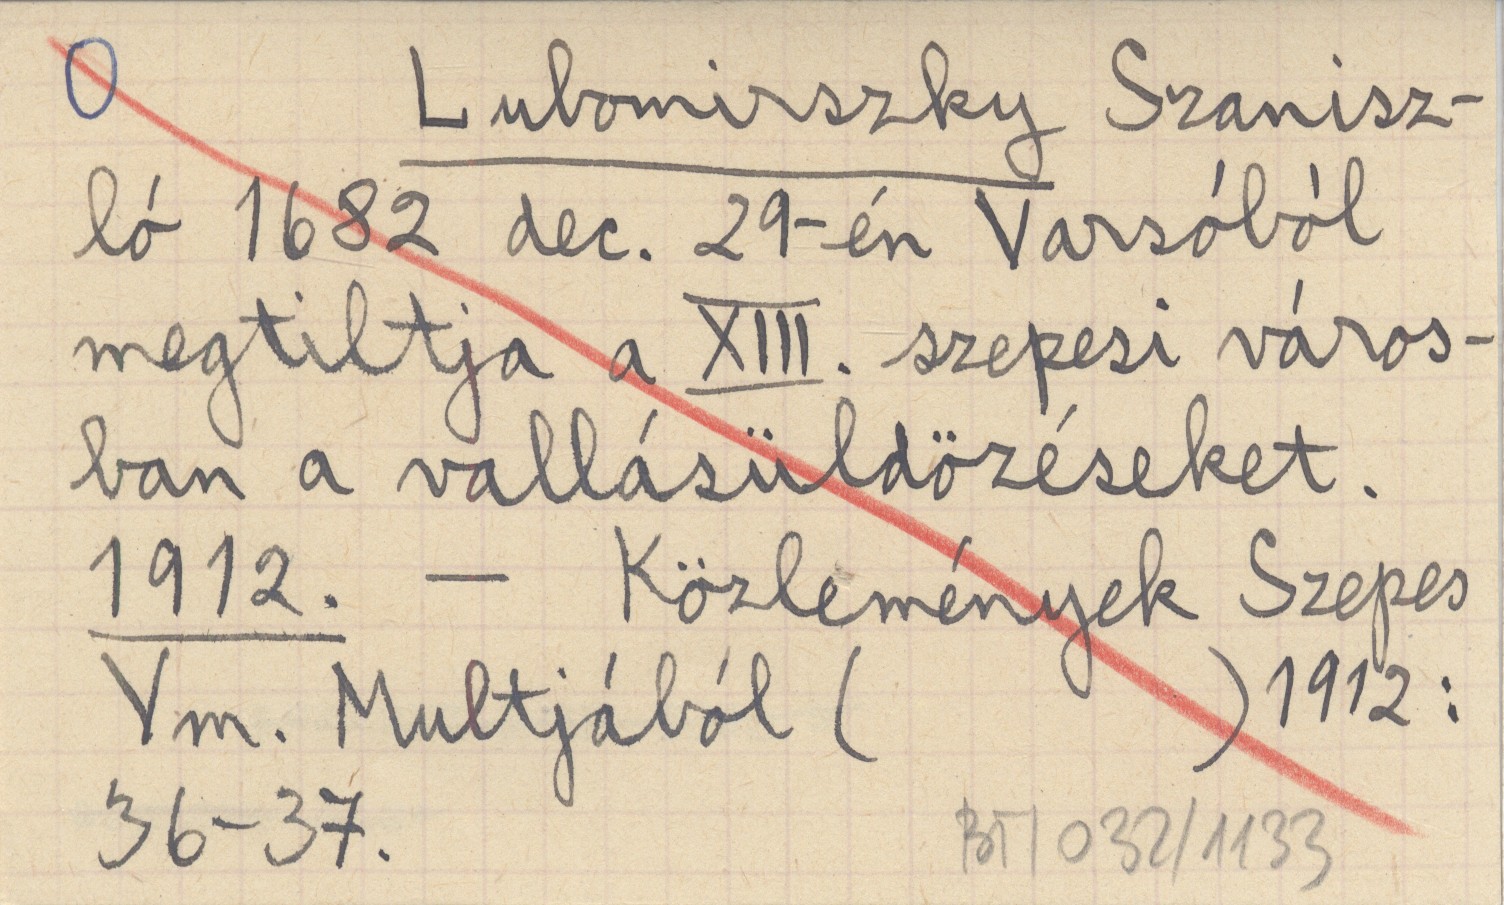 0 Lubomirszky Szanisz-
ló 1682 dec. 29-én Varsóból
megtiltja a XIII. szepesi város-
ban a vallásüldözéseket.
1912. — Közlemények Szepes
Vm. Multjából ( ) 1912:
36-37.
BT/032/1133